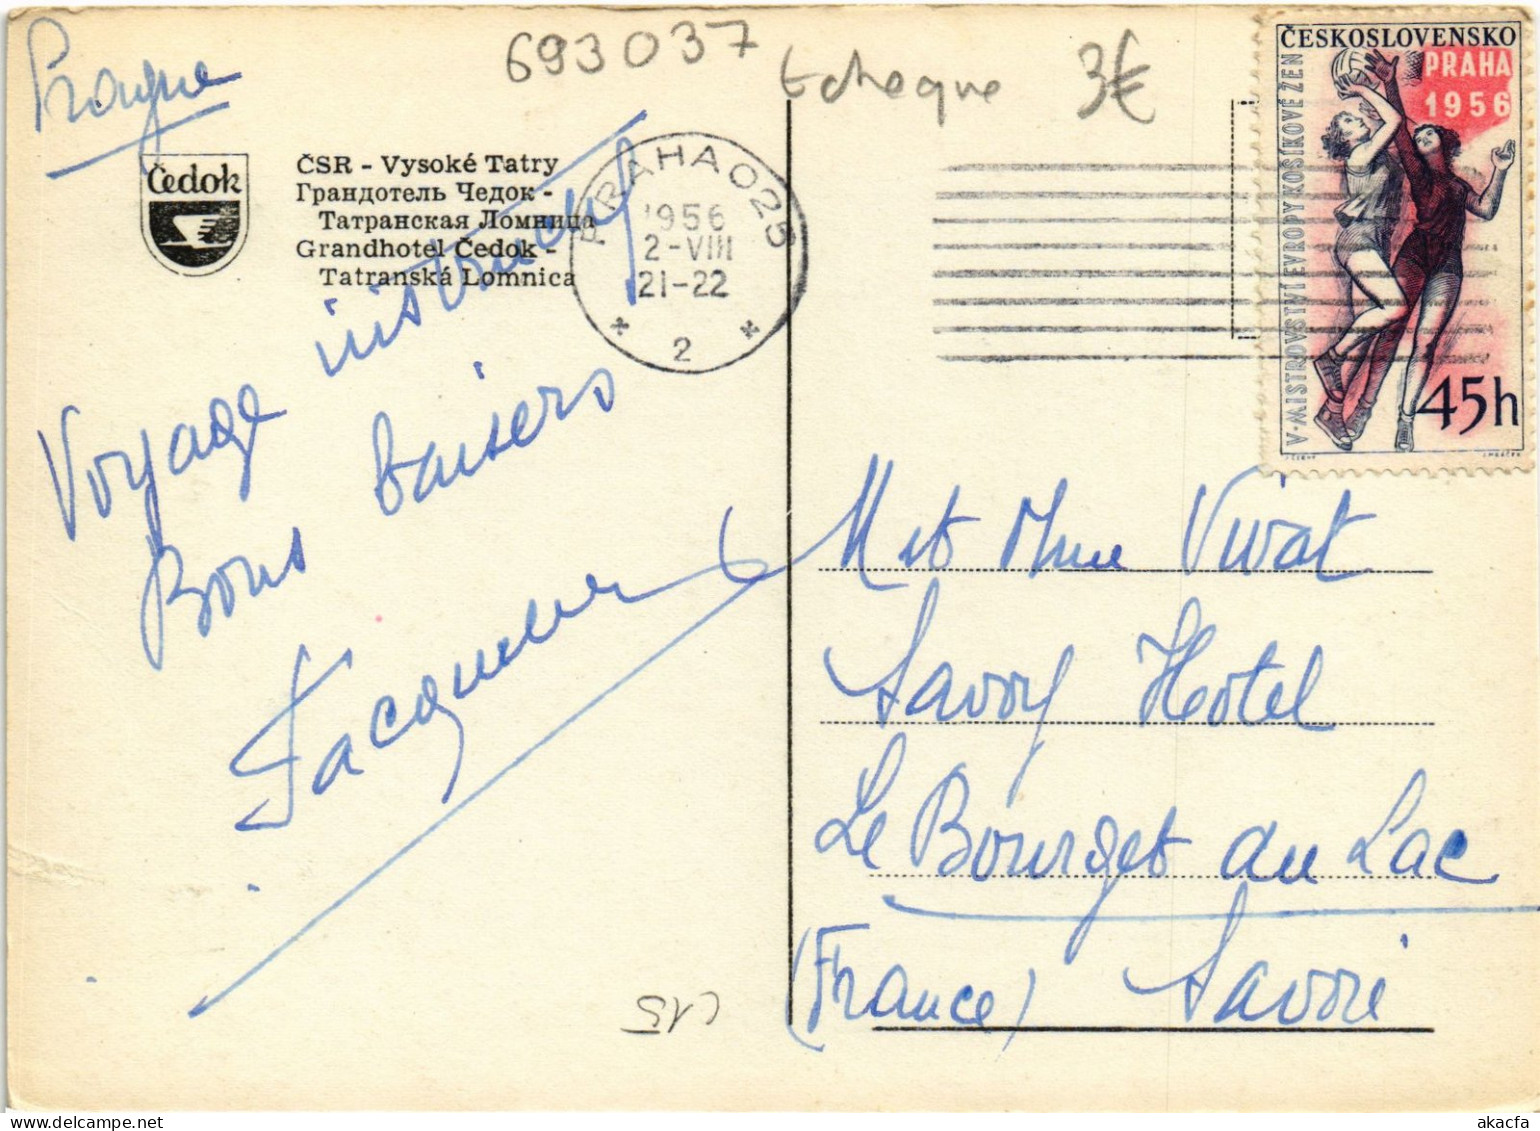 Prague
693037
tcheque
3€
Čedok
ČSR - Vysoké Tatry
Грандотель Чедок -
Татранская Ломница
Grandhotel Čedok -
Tatranská Lomnica
PRAHA 025
1956
2-VIII
21-22
* 2 *
ČESKOSLOVENSKO
PRAHA
1956
V. MISTROVSTVÍ EVROPY KOŠÍKOVÉ ŽEN
45h
Voyage instructif
Bons baisers
Jacqueline
M et Mme Vivat
Savoy Hotel
Le Bourget du Lac
(France) Savoie
C15
© akpool.co.uk
akacfa